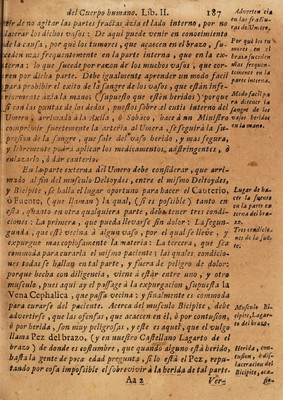 del Cuerpo humano. Lib. II. 187
tir de no agitar las partes fractas àzia el lado interno, por no
lacerar los dichos vasos: De aqui puede venir en conocimiento
de la causa, por què los tumores, que acaecen en el brazo, su-
ceden mas frequentemente en la parte interna, que en la ex-
terna: lo que sucede por razon de los muchos vasos, que cor-
ren por dicha parte. Debe igualmente aprender un modo facil
para prohibir el exito de la sangre de los vasos, que estàn infe-
riormente àzia la mano (supuesto que estèn heridos) porque
si con las puntas de los dedos, puestos sobre el cutis interno del
Umero, arrimado à la Axila, ò Sobaco, hace à un Ministro
comprimir fuertemente la arteria al Umero, se seguirà la su-
pression de la sangre, que sale del vaso herido, y mas segura,
y libremente podrà aplicar los medicamentos, adstringentes, ò
enlazarlo, ò dar cauterio.
En la parte externa del Umero debe considerar, que arri-
mado al fin del musculo Deltoydes, entre el mismo Deltoydes,
y Bicipite, se halla el lugar oportuno para hacer el Cauterio,
ò Fuente, (que llaman) la qual, (si es possible) tanto en
esta, quanto en otra qualquiera parte, debe tener tres condi-
ciones: La primera, que pueda llevarse sin dolor: La segun-
gunda, que estè vecina à algun vaso, por el qual se lleve, y
expurgue mas copiosamente la materia: La tercera, que sea
commoda para curarla el mismo paciente: las quales condicio-
nes todas se hallan en tal parte, y fuera de peligro de dolor;
porque hecha con diligencia, viene à estàr entre uno, y otro
musculo, pues aqui ay el passage à la expurgacion, supuesta la
Vena Cephalica, que passa vecina; y finalmente es commoda
para curarse del paciente. Acerca del musculo Bicipite, debe
advertirse, que las ofensas, que acaecen en èl, ò por contusion,
ò por herida, son muy peligrosas, y este es aquel, que el vulgo
llama Pez del brazo, (y en nuestro Castellano Lagarto de el
brazo) de donde es costumbre, que quando alguno està herido,
hasta la gente de poca edad pregunta, si lo està el Pez, repu-
tando por cosa impossible el sobrevivir à la herida de tal parte.
Aa 2 Ver-
Modo facil pa
ra detener la
sangre de los
vasos heridos
en la mano.
Lugar de ha-
cer la fuente
en la parte ex
terna del bra-
zo.
Tres condicio-
nes de la fue-
te.
Musculo Bi-
cipite, Lagar-
to del brazo.
Herida, con-
tusion, ò di-